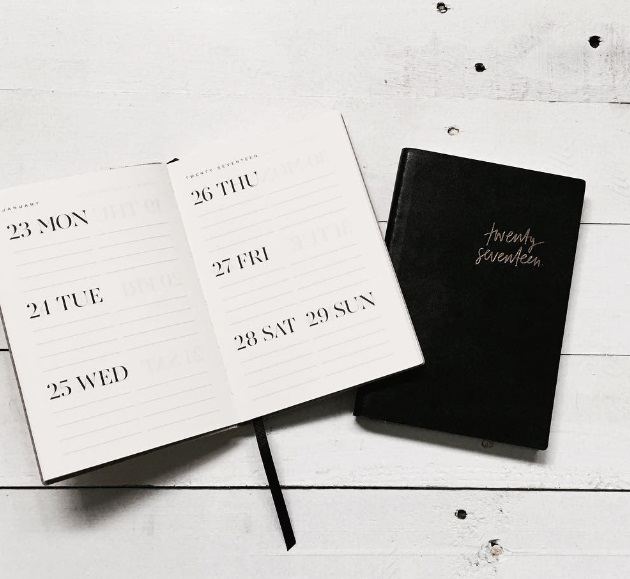 JANUARY
23 MON
24 TUE
25 WED
TWENTY SEVENTEEN
26 THU
27 FRI
28 SAT 29 SUN
twenty
seventeen